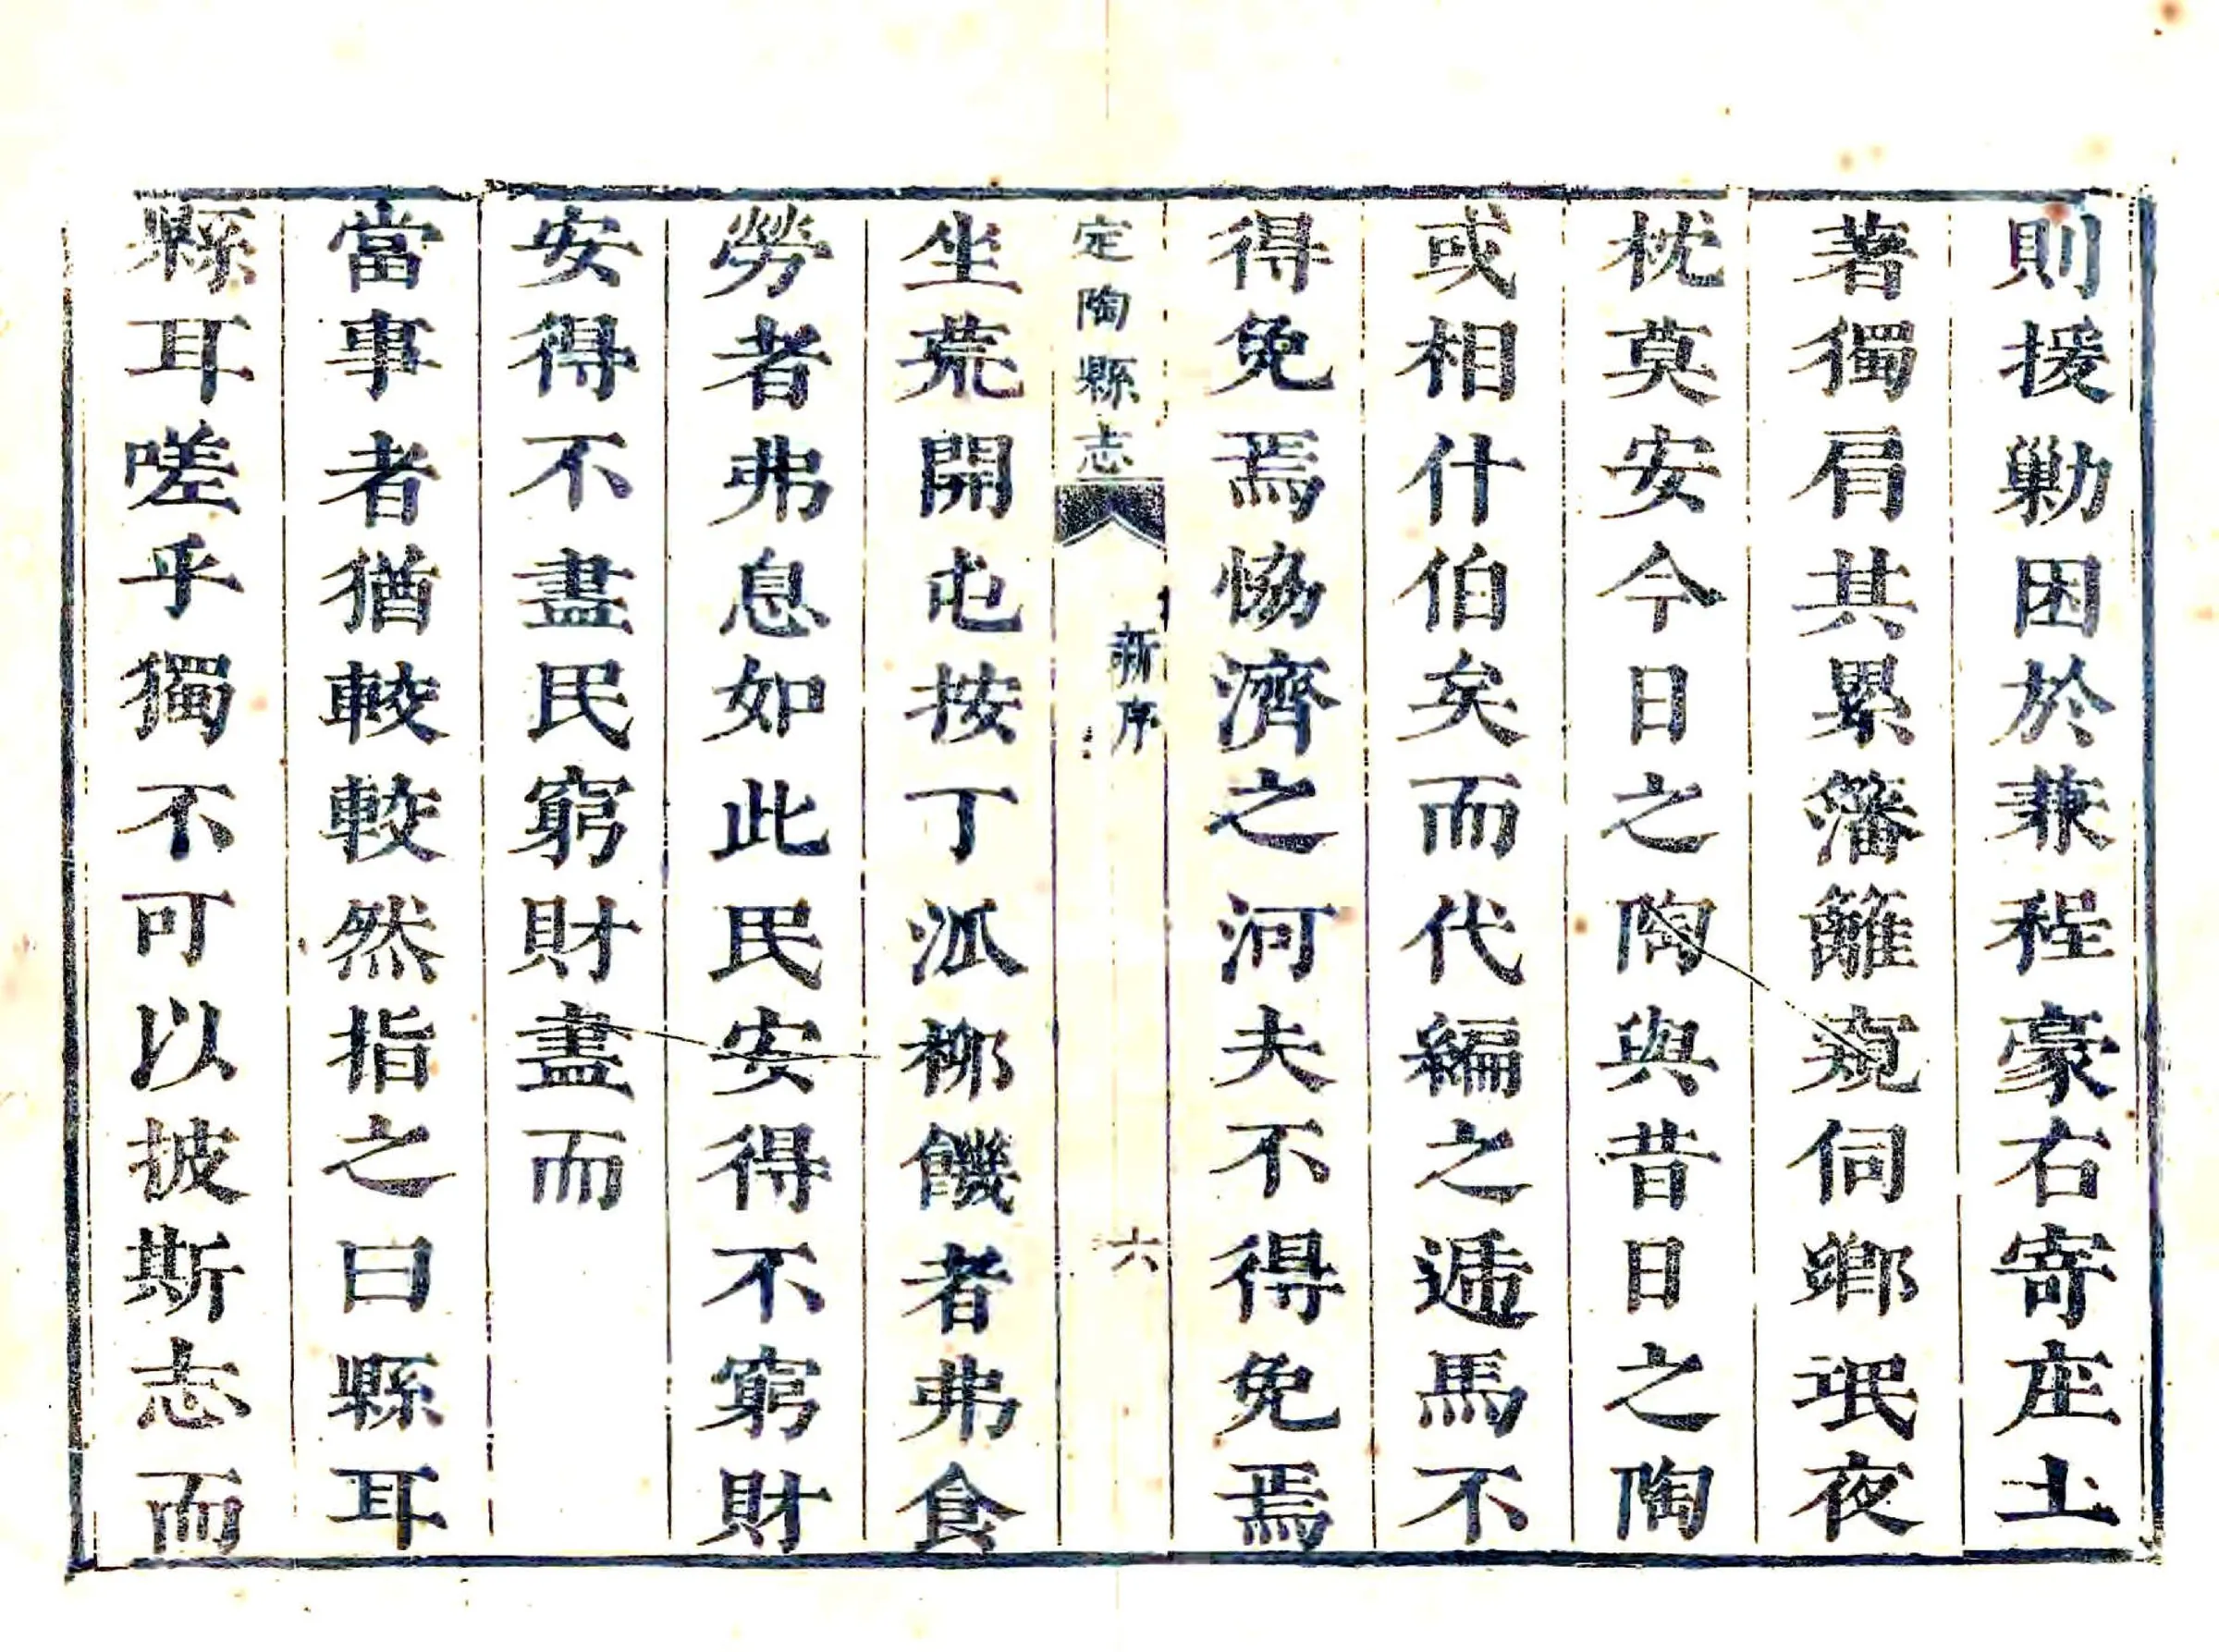 則援勦困於兼程豪右寄庄土
著獨肩其累籓籬窺伺鄉氓夜
枕莫安今日之陶與昔日之陶
或相什伯矣而代編之遞馬不
得免焉恊濟之河夫不得免焉
定陶縣志
新序
六
坐荒開屯按丁派柳饑者弗食
勞者弗息如此民安得不窮財
安得不盡民窮財盡而
當事者猶較較然指之曰縣耳
縣耳嗟乎獨不可以披斯志而